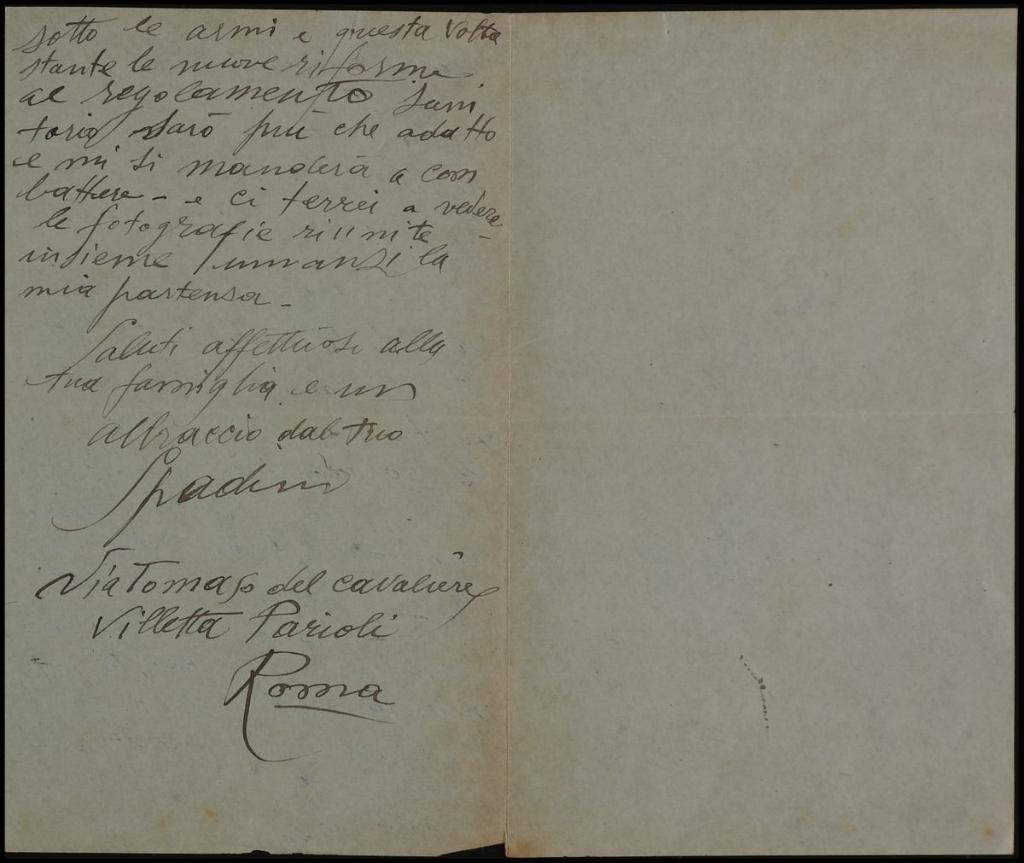 sotto le armi e questa volta
stante le nuove riforme
al regolamento sani
tario sarò più che adatto
e mi si manderà a com
battere - e ci terrei a vedere
le fotografie riunite
insieme innanzi la
mia partenza -
Saluti affettuosi alla
tua famiglia e un
abbraccio dal tuo
Spadini
Via Tomaso del cavaliere
Villetta Parioli
Roma